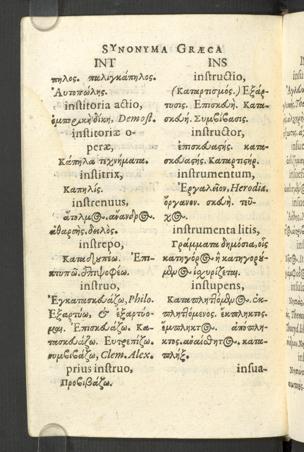 SYNONYMA GRÆCA
INT
πηλος. παλιγκάπηλος.
Αυτοπώλης.
institoria actio,
ἐμπορικὴ δίκη. Demost.
institoriæ o-
peræ,
Κάπηλα τεχνήματα.
institrix,
Καπηλίς.
instrenuus,
ἄτολμος. ἄνανδρος.
ἀθαρσὴς. δειλός.
instrepo,
Ἐπι-
instruo,
Ἐγκατασκευάζω, Philo.
Ἐξαρτύω, & ἐξαρτύο-
μαι. Ἐπισκευάζω. Κα-
τασκευάζω. Ευτρεπίζω.
συμβιβάζω, Clem. Alex.
prius instruo,
Προβιβάζω.
INS
instructio,
(Καταρτισμός.) Εξάρ-
τυσις. Επισκευή. Κατα-
σκευή. Συμβίβασις.
instructor,
ἐπισκευαστὴς. κατα-
σκευαστής. Καταρτιστήρ.
instrumentum,
Ἐργαλεῖον, Herodia.
ὄργανον. σκευή. τεῦ-
χος.
instrumenta litis,
Γράμματα δημόσια, οἷς
κατηγορος ἢ κατηγορού-
μενος ἰσχυρίζεται.
instupens,
Καταπληττόμενος. ἐκ-
πληττόμενος. ἔκπληκτος.
ἔμπληκτος. ἀπόπλη-
κτος. ἀναίσθητος. κατα-
πλήξ.
insua-